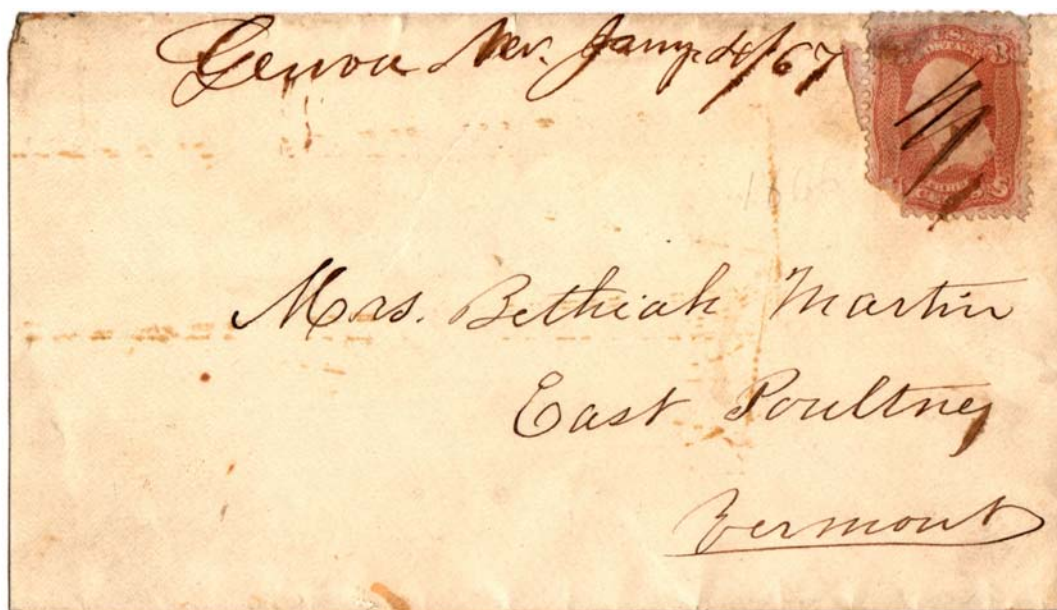 Genoa Nev. Jany. 4/67
U.S. POSTAGE 3
Mrs. Bethiah Martin
East Poultney
Vermont